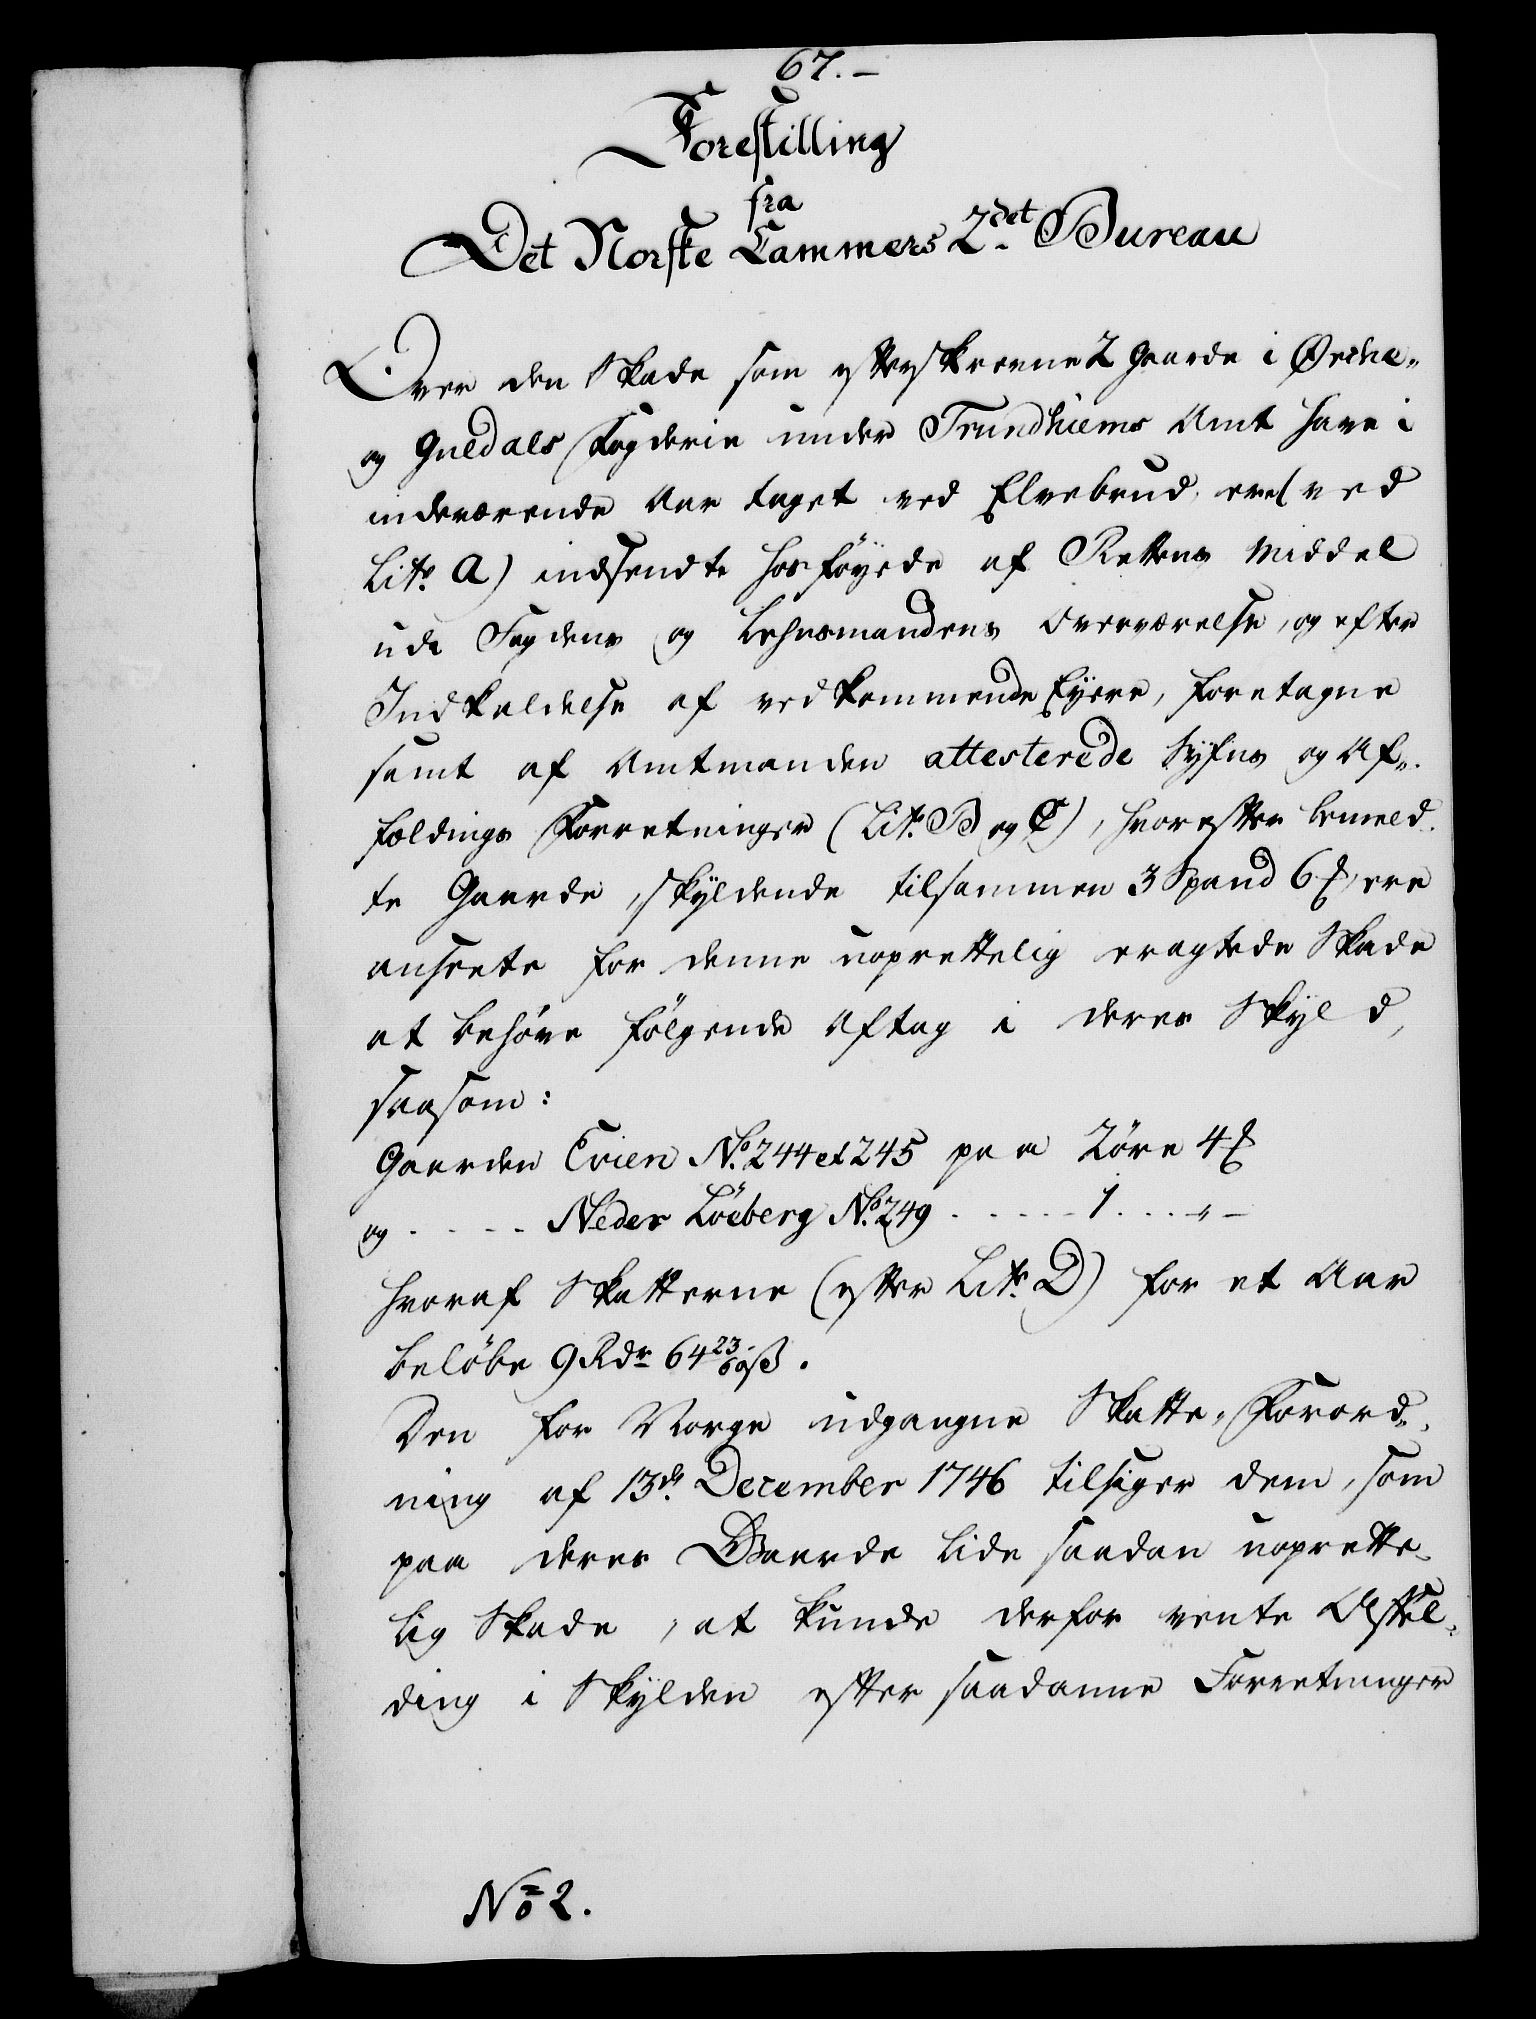 67.-
Forestilling
fra
Det Norske Cammers 2det Bureau
Over den Skade som efterskrevne 2 Gaarde i Ørche-
og Guldals Fogderie under Trundhiems Amt have i
indeværende Aar taget ved Elvebrud, ere (ved
Litr. A) indsendte hosföyede af Rettens Middel
udi Fogdens og Lehnsmandens Overværelse, og efter
Indkaldelse af vedkommende Eyere, foretagne
samt af Amtmanden attesterede Syhns og Af-
fældings Forretninger (Litr. B og C), hvorefter bemeld-
te Gaarde, skyldende tilsammen 3 Spand 6 , ere
anseete for denne uoprettelig eragtede Skade
at behöve fölgende Aftag i deres Skyld,
saasom:
Gaarden Evien No. 244 et 245 paa 2 öre 4
og ..... Neder Löeberg No. 249 ...... 1 .... „ -
hvoraf Skatterne (efter Litr. D) for et Aar
belöbe 9 Rdr 64 23/60 ß.
Den for Norge udgangne Skatte-Forord-
ning af 13de December 1746 tilsiger dem, som
paa deres Gaarde lide saadan uoprette-
lig Skade, at kunde derfor vente Affæl-
ding i Skylden efter saadanne Forretninger
No 2.